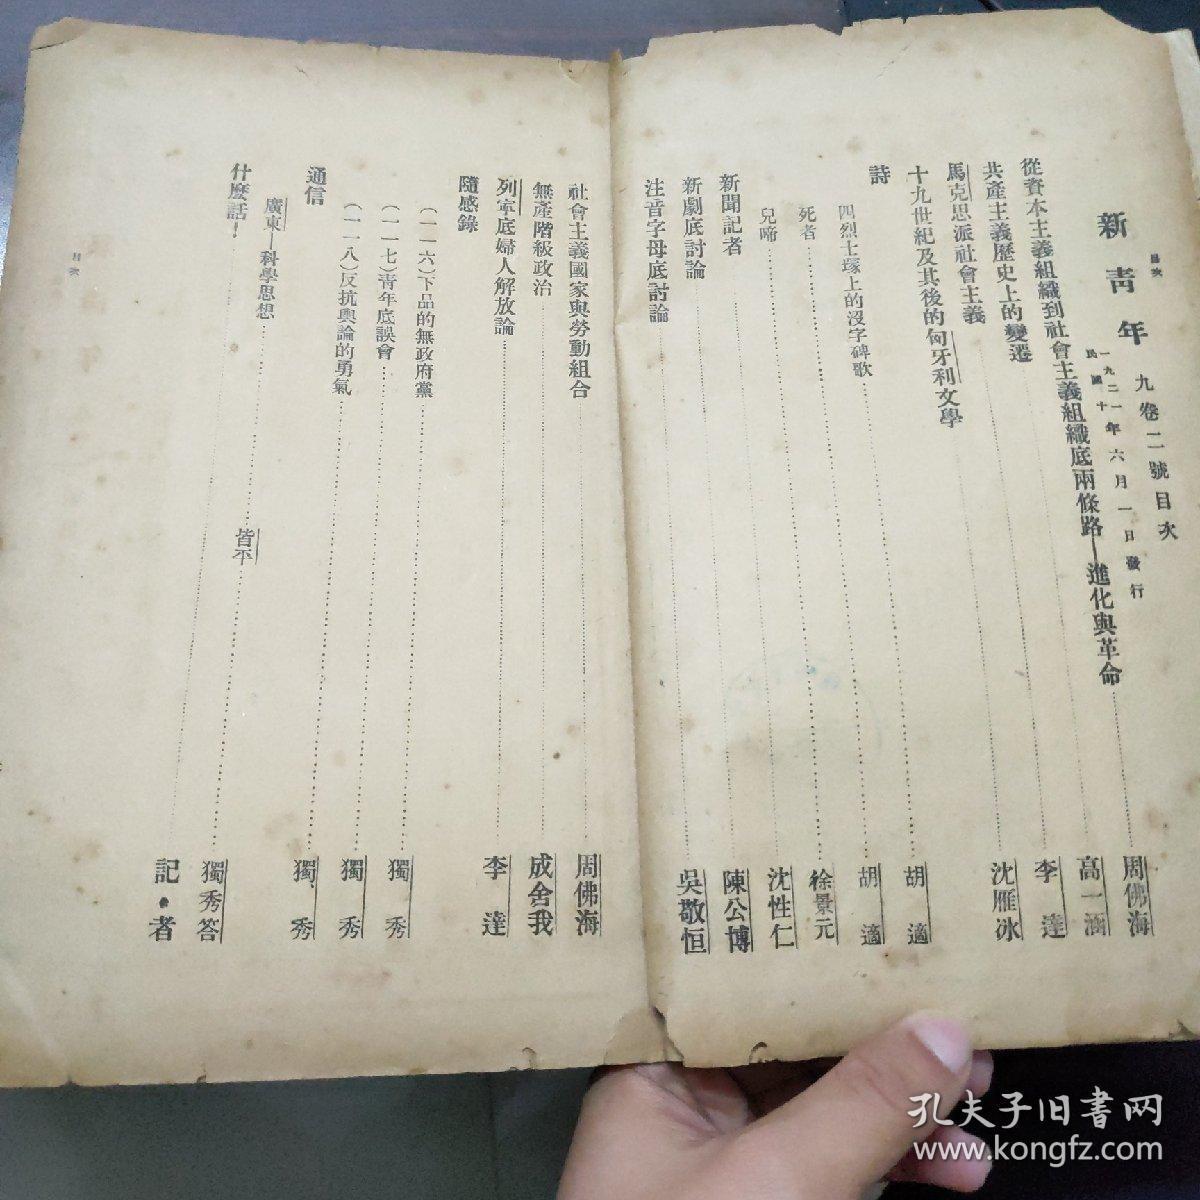 目次
新青年 九卷二號目次
一九二一年六月一日發行
民國十年
從資本主義組織到社會主義組織底兩條路—進化與革命 周佛海
共產主義歷史上的變遷 高一涵
馬克思派社會主義 李達
十九世紀及其後的匈牙利文學 沈雁冰
詩
四烈士塚上的沒字碑歌 胡適
死者 胡適
兒啼 徐景元
新聞記者 沈性仁
新劇底討論 陳公博
注音字母底討論 吳敬恒
社會主義國家與勞動組合 周佛海
無產階級政治 成舍我
列寧底婦人解放論 李達
隨感錄
(一一六)下品的無政府黨 獨秀
(一一七)青年底誤會 獨秀
(一一八)反抗輿論的勇氣 獨秀
通信
廣東—科學思想 皆平 獨秀答
什麼話! 記者
目次
孔夫子旧書网
www.kongfz.com